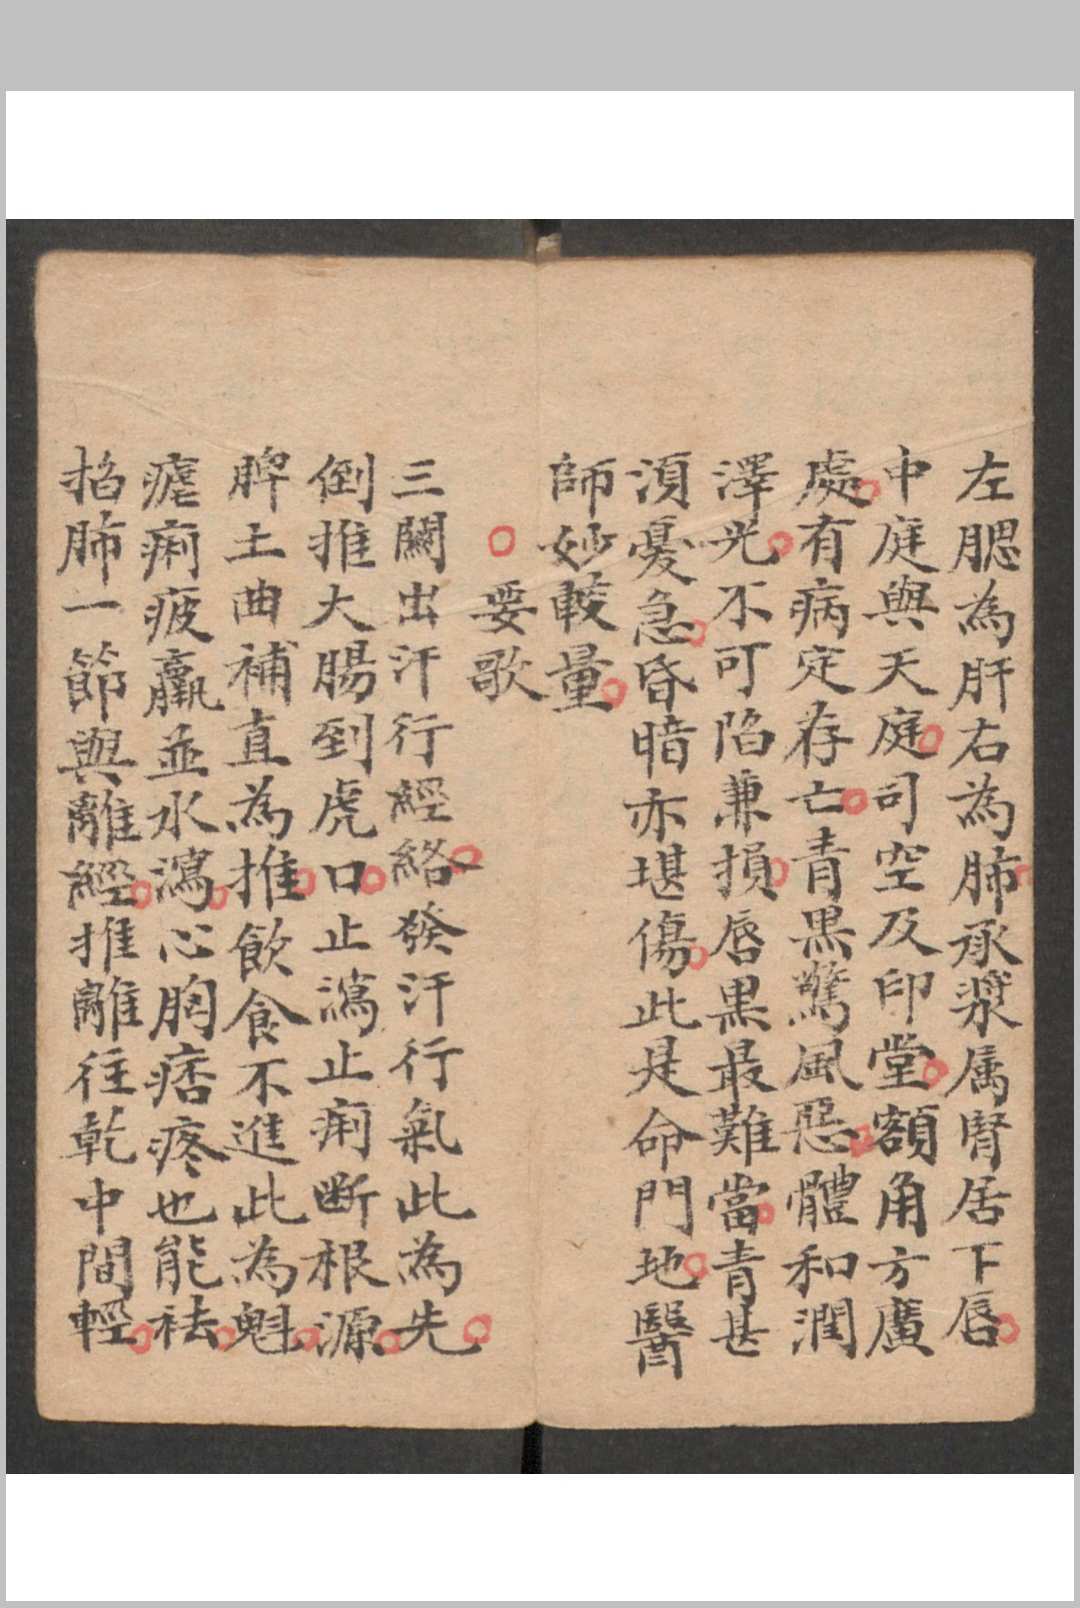 左腮為肝右為肺承漿属腎居下唇
中庭與天庭司空及印堂額角方廣
處有病定存亡青黒驚風惡體和潤
澤光不可陷兼損唇黒最難當青甚
湏憂急昏暗亦堪傷此是命門地醫
師妙較量
要歌
三關出汗行經絡發汗行氣此為先
倒推大腸到虎口止瀉止痢断根源
脾土曲補直為推飲食不進此為魁
瘧痢疲羸並水瀉心胸痞疼也能祛
掐肺一節與離經推離往乾中間輕